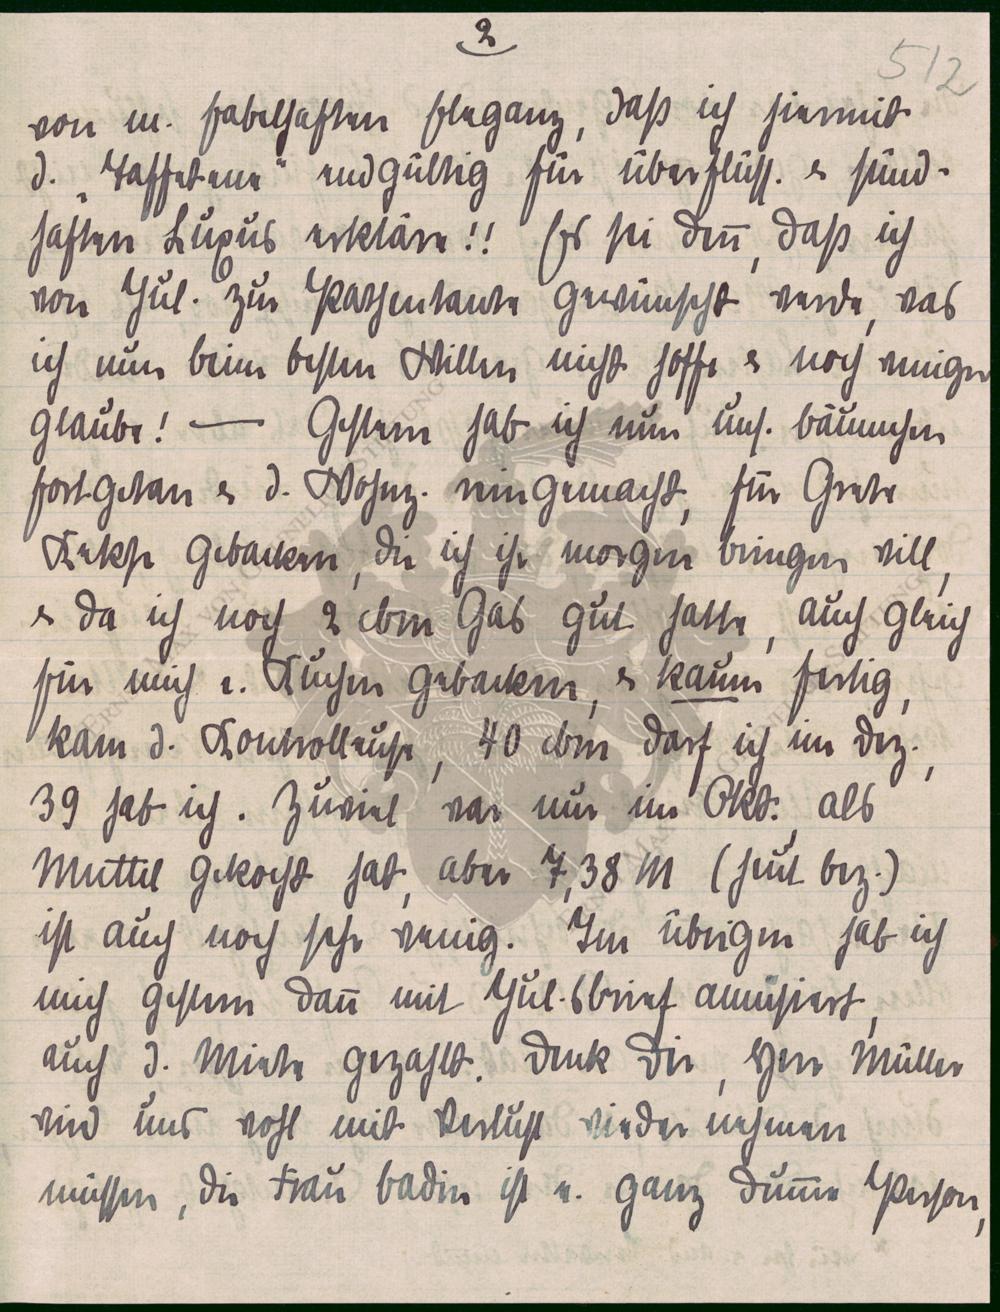 2
512
von m. fabelhaften Eleganz, daß ich hiermit
d. "Taffetene" endgültig für überflüss. & sünd-
haften Luxus erkläre!! Es sei den̅, daß ich
von Jul. zur Pathentante gewünscht werde, was
ich nun beim besten Willen nicht hoffe & noch weniger
glaube! — Gestern hab ich nun uns. Bäumchen
fortgetan & d. Wohnz. reingemacht, für Grete
Kekse gebacken, die ich ihr morgen bringen will,
& da ich noch 2 cbm Gas gut hatte, auch gleich
für mich e. Kuchen gebacken, & kaum fertig,
kam d. Kontrolleuse, 40 cbm darf ich im Dez.,
39 hab ich. Zuviel war nur im Okt., als
Muttel gekocht hat, aber 7,38 M (heut bez.)
ist auch noch sehr wenig. Im übrigen hab ich
mich gestern dan̅ mit Jul.sbrief amüsiert,
auch d. Miete gezahlt. Denk Dir, Herr Müller
wird uns wohl mit Verlust wieder nehmen
müssen, die Frau Badin ist e. ganz dum̅e Person,